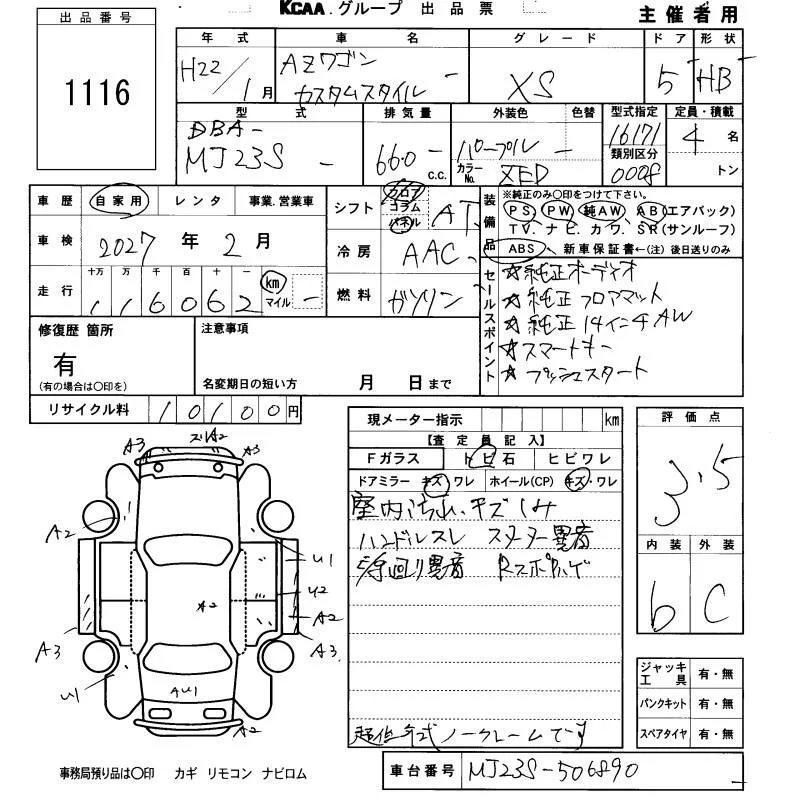 KCAA.グループ 出品票
主催者用
出品番号
1116
年式 車名 グレード ドア 形状
H22/1月 AZワゴン カスタムスタイル XS 5 HB
型式 排気量 外装色 色替 型式指定 定員・積載
DBA-
MJ23S 660 c.c. パープル 16171 4名
カラーNo. ZED 類別区分 0008 トン
車歴 自家用 レンタ 事業.営業車
車検 2027年2月
走行 十万 万 千 百 十 一
116062 km マイル
シフト フロア コラム パネル AT
冷房 AAC
燃料 ガソリン
装備品 ※純正のみ○印をつけて下さい。
PS PW 純AW AB(エアバック)
TV. ナビ. カワ. SR(サンルーフ)
ABS 新車保証書←(注)後日送りのみ
セールスポイント
☆純正オーディオ
☆純正フロアマット
☆純正14インチAW
☆スマートキー
☆プッシュスタート
修復歴 箇所
有
(有の場合は○印を)
注意事項
名変期日の短い方 月 日まで
リサイクル料 10100円
現メーター指示 km
【査定員記入】
Fガラス トビ石 ヒビワレ
ドアミラー キズ・ワレ ホイール(CP) キズ・ワレ
室内汚れ.キズ しみ
ハンドルスレ スターター異音
異音 Rスポ
超低年式 ノークレームです
評価点
3.5
内装 外装
6 C
ジャッキ 工具 有・無
パンクキット 有・無
スペアタイヤ 有・無
A3 A2 A3
A2 U1
U2
A2 A2
A3 A3
U1 AU1
A2
事務局預り品は○印 カギ リモコン ナビロム
車台番号 MJ23S-506890